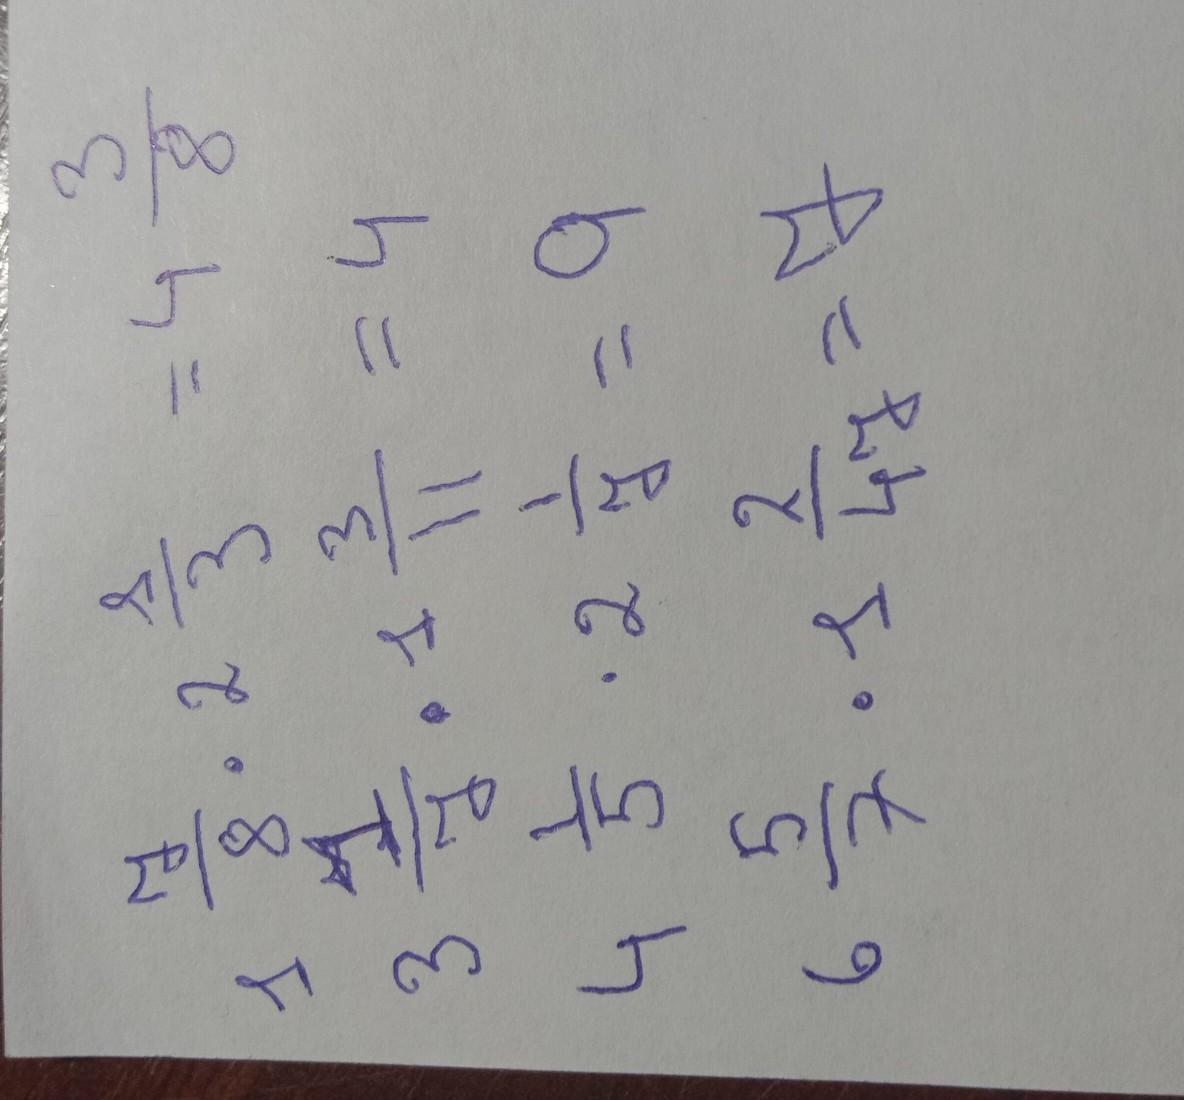 1 7/8 · 2 1/3 = 4 3/8
3 1/7 · 1 3/11 = 4
4 1/5 · 2 1/7 = 9
6 5/7 · 1 2/47 = 7